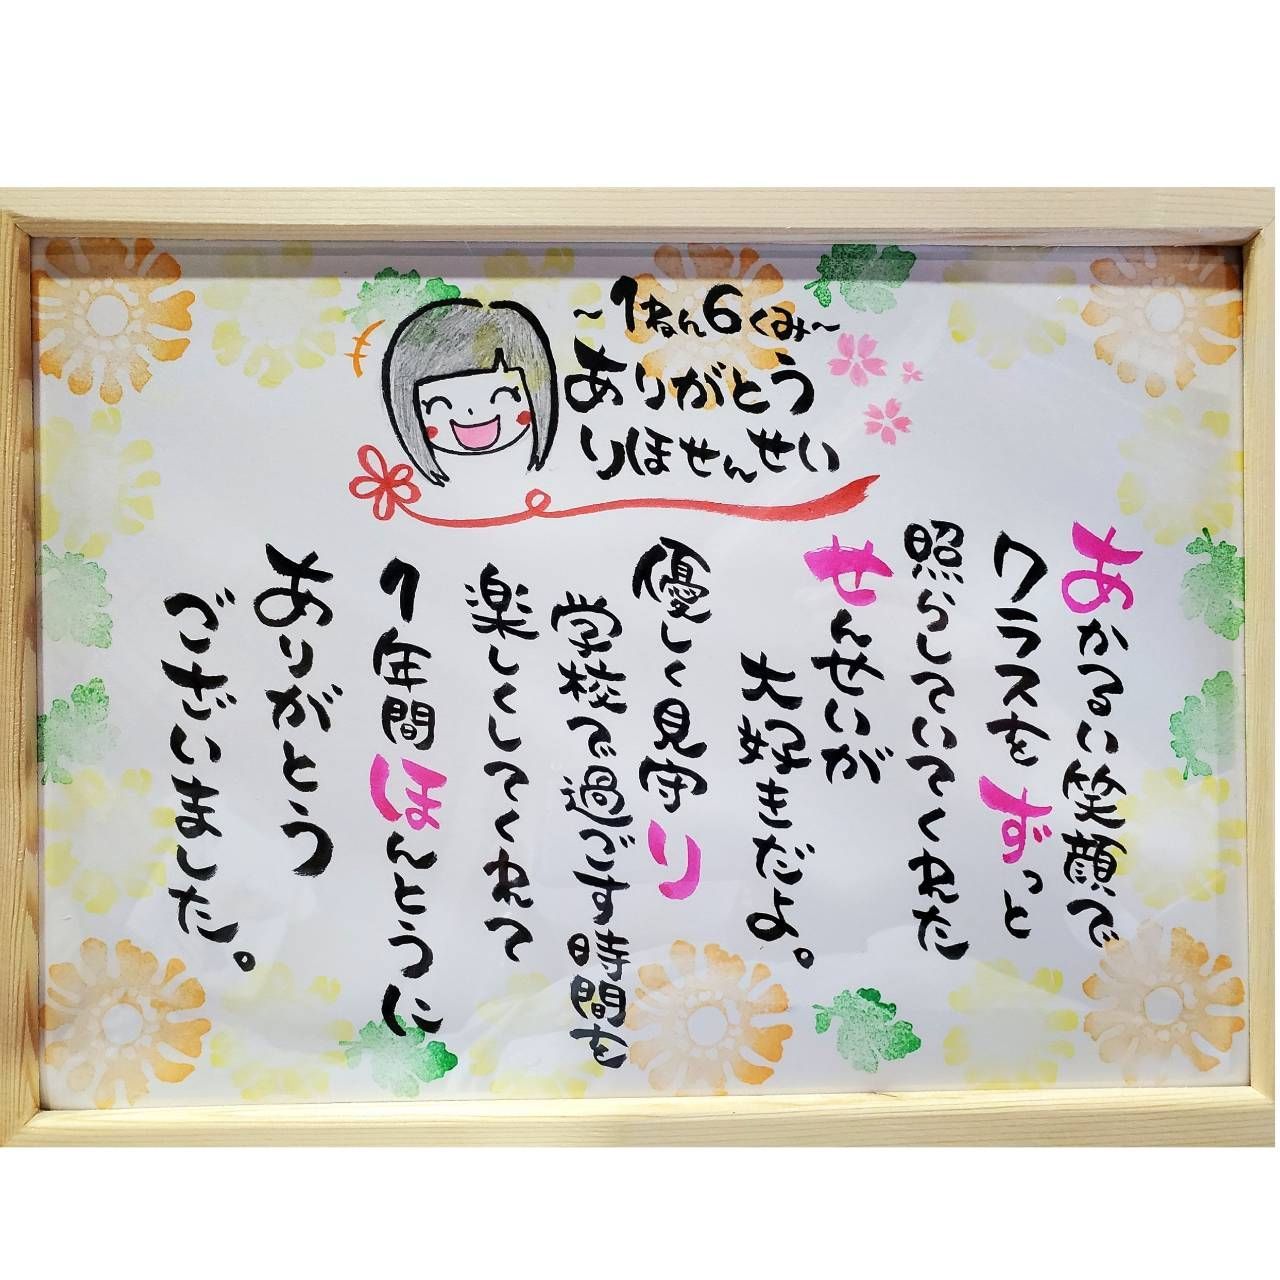 ～1ねん6くみ～
ありがとう
りほせんせい
あかるい笑顔で
クラスをずっと
照らしていてくれた
せんせいが
大好きだよ。
優しく見守り
学校で過ごす時間を
楽しくしてくれて
1年間ほんとうに
ありがとう
ございました。